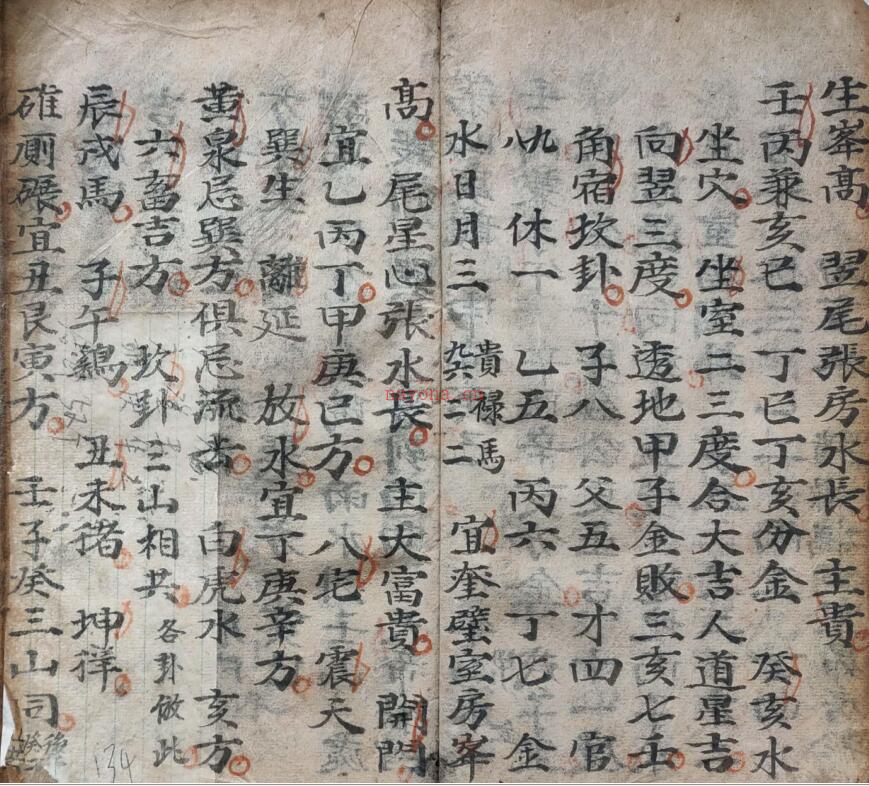 生峯高　翌尾張房水長　主貴
壬丙兼亥巳　丁巳丁亥分金　癸亥水
坐穴　坐室二三度合大吉人道星吉
向翌三度　透地甲子金敗三亥七壬
角宿坎卦　子八　父五　才四　官
九　休一　乙五　丙六　丁七　金
八
水日月三　貴祿馬　宜奎壁室房峯
九六一二
高　尾星心張水長　主大富貴　開門
宜乙丙丁甲庚巳方　八宅　震天
巽生　離延　放水宜丁庚辛方
黄泉忌巽方俱忌流去　白虎水　亥方
六畜吉方　坎卦三山相共　各卦倣此
辰戌馬　子午鷄　丑未猪　坤牂
碓厠碾宜丑艮寅方　壬子癸三山同
134
nayona.cn